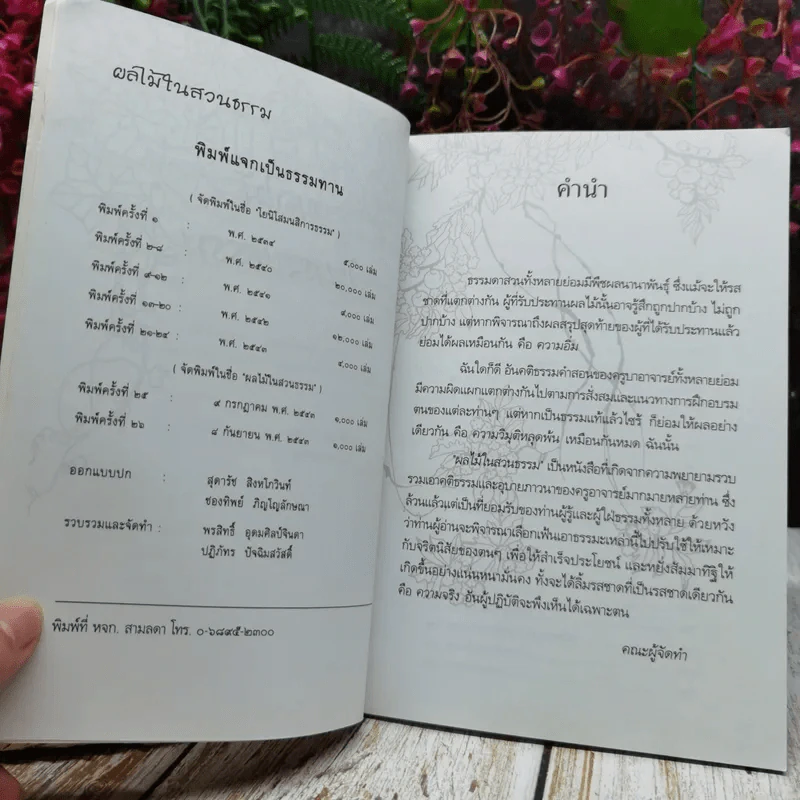 ผลไม้ในสวนธรรม
พิมพ์แจกเป็นธรรมทาน
( จัดพิมพ์ในชื่อ "โยนิโสมนสิการธรรม" )
พิมพ์ครั้งที่ ๑ : พ.ศ. ๒๕๓๔ ๕,๐๐๐ เล่ม
พิมพ์ครั้งที่ ๒-๘ : พ.ศ. ๒๕๔๐ ๒๐,๐๐๐ เล่ม
พิมพ์ครั้งที่ ๙-๑๒ : พ.ศ. ๒๕๔๑ ๙,๐๐๐ เล่ม
พิมพ์ครั้งที่ ๑๓-๒๐ : พ.ศ. ๒๕๔๒ ๑๒,๐๐๐ เล่ม
พิมพ์ครั้งที่ ๒๑-๒๔ : พ.ศ. ๒๕๔๓ ๔,๐๐๐ เล่ม
( จัดพิมพ์ในชื่อ "ผลไม้ในสวนธรรม" )
พิมพ์ครั้งที่ ๒๕ : ๙ กรกฎาคม พ.ศ. ๒๕๔๓ ๑,๐๐๐ เล่ม
พิมพ์ครั้งที่ ๒๖ : ๘ กันยายน พ.ศ. ๒๕๔๓ ๑,๐๐๐ เล่ม
ออกแบบปก : สุดารัช สิงหโกวินท์
ช่องทิพย์ ภิญโญลักษณา
รวบรวมและจัดทำ : พรสิทธิ์ อุดมศิลป์จินดา
ปฏิภัทร ปัจฉิมสวัสดิ์
พิมพ์ที่ หจก. สามลดา โทร. ๐-๖๘๙๕-๒๓๐๐
คำนำ
ธรรมดาสวนทั้งหลายย่อมมีพืชผลนานาพันธุ์ ซึ่งแม้จะให้รส
ชาดที่แตกต่างกัน ผู้ที่รับประทานผลไม้นั้นอาจรู้สึกถูกปากบ้าง ไม่ถูก
ปากบ้าง แต่หากพิจารณาถึงผลสรุปสุดท้ายของผู้ที่ได้รับประทานแล้ว
ย่อมได้ผลเหมือนกัน คือ ความอิ่ม
ฉันใดก็ดี อันคติธรรมคำสอนของครูบาอาจารย์ทั้งหลายย่อม
มีความผิดแผกแตกต่างกันไปตามการสั่งสมและแนวทางการฝึกอบรม
ตนของแต่ละท่านๆ แต่หากเป็นธรรมแท้แล้วไซร้ ก็ย่อมให้ผลอย่าง
เดียวกัน คือ ความวิมุติหลุดพ้น เหมือนกันหมด ฉันนั้น
"ผลไม้ในสวนธรรม" เป็นหนังสือที่เกิดจากความพยายามรวบ
รวมเอาคติธรรมและอุบายภาวนาของครูอาจารย์มากมายหลายท่าน ซึ่ง
ล้วนแล้วแต่เป็นที่ยอมรับของท่านผู้รู้และผู้ใฝ่ธรรมทั้งหลาย ด้วยหวัง
ว่าท่านผู้อ่านจะพิจารณาเลือกเฟ้นเอาธรรมะเหล่านี้ไปปรับใช้ให้เหมาะ
กับจริตนิสัยของตนๆ เพื่อให้สำเร็จประโยชน์ และหยั่งสัมมาทิฐิให้
เกิดขึ้นอย่างแน่นหนามั่นคง ทั้งจะได้ลิ้มรสชาดที่เป็นรสชาดเดียวกัน
คือ ความจริง อันผู้ปฏิบัติจะพึงเห็นได้เฉพาะตน
คณะผู้จัดทำ